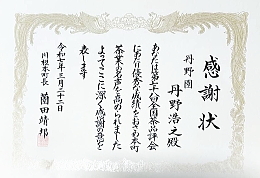 感謝状
丹野園
丹野浩之殿
あなたは第七十八回全国茶品評会
において優秀な成績をおさめ本町
茶業の名声を高められました
よってここに深く感謝の意を
表します
令和七年三月二十二日
川根本町長 薗田靖邦